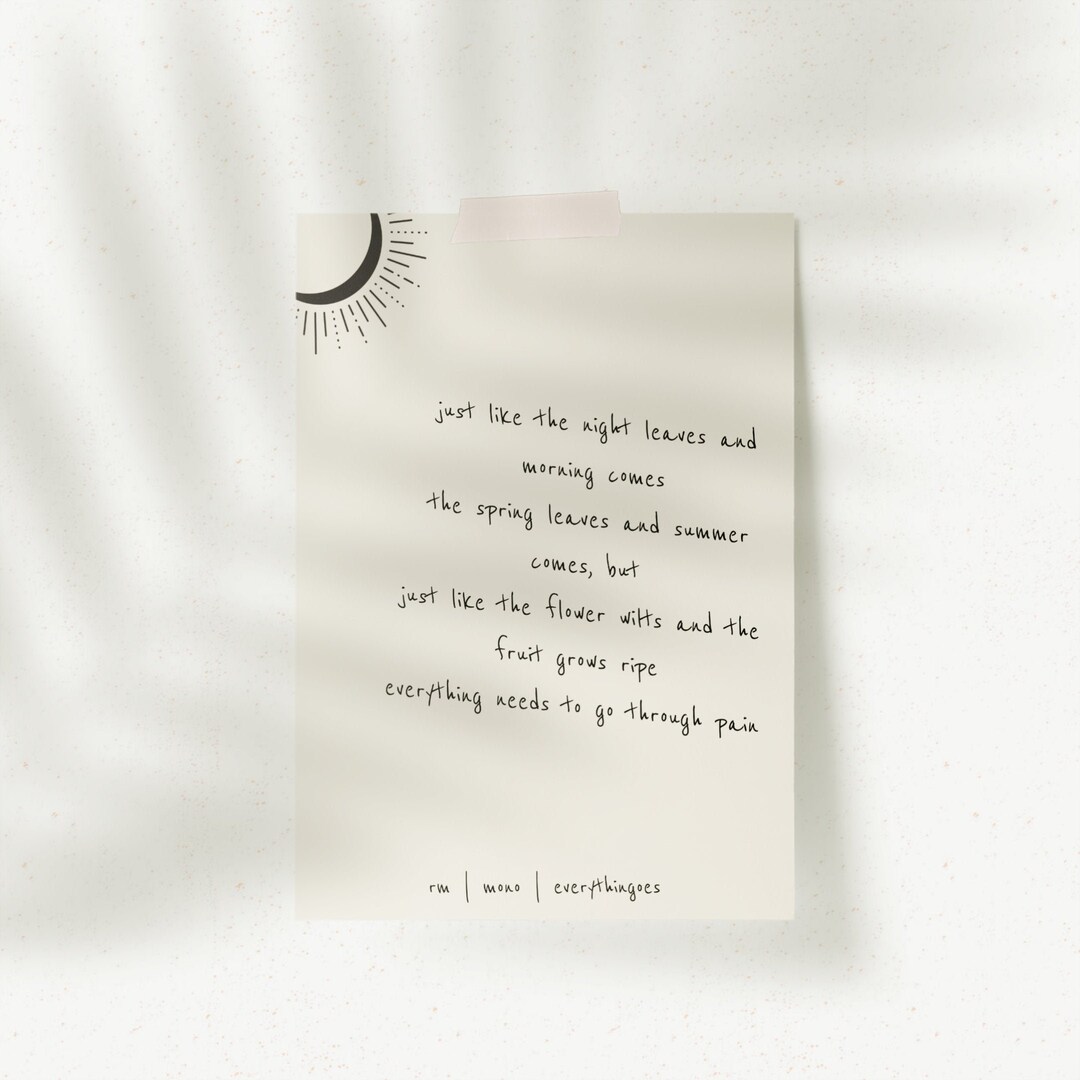 just like the night leaves and
morning comes
the spring leaves and summer
comes, but
just like the flower wilts and the
fruit grows ripe
everything needs to go through pain
rm | mono | everythingoes